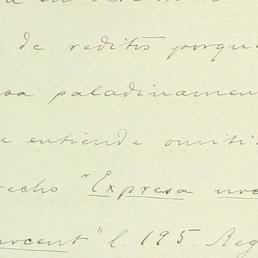 de reditos porque
sa paladinamen
entiende omiti
recho "Expresa noc
nocent" l. 195. Reg